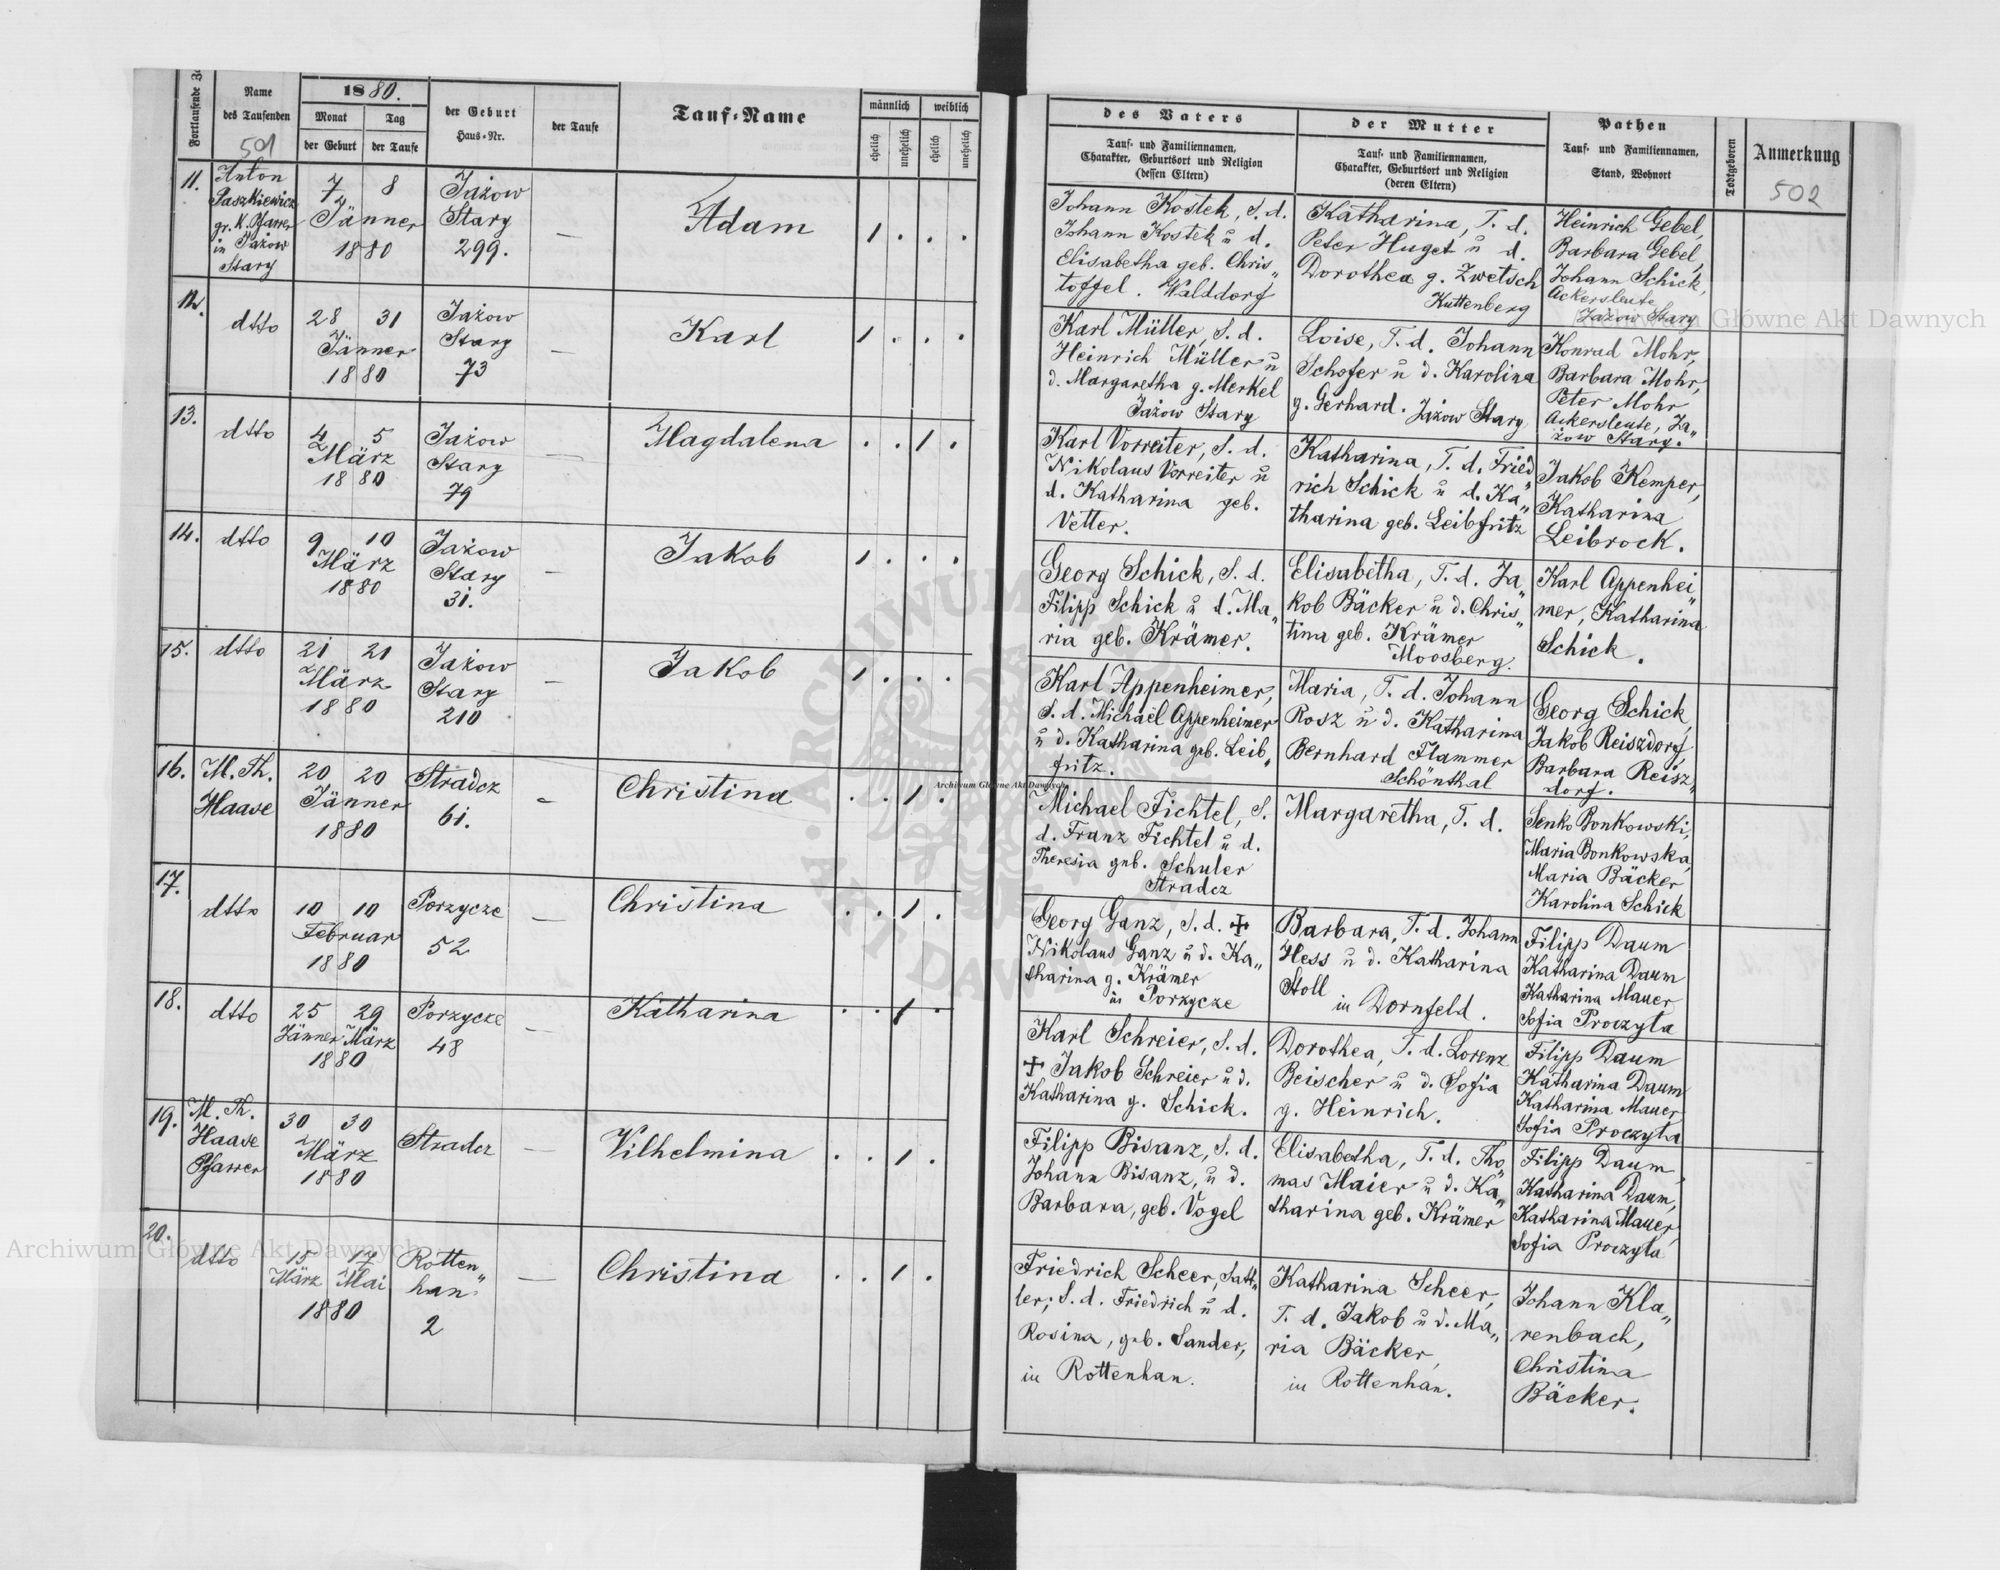 Fortlaufende
Name
des Taufenden
501
1880.
Monat
Tag
der Geburt
der Taufe
der Geburt
Haus-Nr.
der Taufe
Tauf-Name
männlich
weiblich
ehelich
unehelich
ehelich
unehelich
11.
Anton
Paszkiewicz
gr. K. Pfarrer
in Jażow
Stary
7 8
Jänner
1880
Jażow
Stary
299.
—
Adam
1 . . .
12.
dtto
28 31
Jänner
1880
Jażow
Stary
73
—
Karl
1 . . .
13.
dtto
4 5
März
1880
Jażow
Stary
79
—
Magdalena
. . 1 .
14.
dtto
9 10
März
1880
Jażow
Stary
31.
—
Jakob
1 . . .
15.
dtto
21 21
März
1880
Jażow
Stary
210
—
Jakob
1 . . .
16.
M. Th.
Haase
20 20
Jänner
1880
Stradcz
61.
—
Christina
. . 1 .
17.
dtto
10 10
Februar
1880
Porzycze
52
—
Christina
. . 1 .
18.
dtto
25 29
Jänner März
1880
Porzycze
48
—
Katharina
. . 1 .
19.
M. Th.
Haase
Pfarrer
30 30
März
1880
Stradcz
—
Vilhelmina
. . 1 .
20.
dtto
15 17
März Mai
1880
Rotten„
han
2
—
Christina
. . 1 .
des Vaters
Tauf- und Familiennamen,
Charakter, Geburtsort und Religion
(dessen Eltern)
der Mutter
Tauf- und Familiennamen,
Charakter, Geburtsort und Religion
(deren Eltern)
Pathen
Tauf- und Familiennamen,
Stand, Wohnort
Todtgeboren
Anmerkung
502
Johann Kostek, S. d.
Johann Kostek u d.
Elisabetha geb. Chris„
toffel. Walddorf
Katharina, T. d.
Peter Huget u d.
Dorothea g. Zwetsch
Kuttenberg
Heinrich Gebel,
Barbara Gebel,
Johann Schick,
Ackersleute
Jażow Stary
Karl Müller, S. d.
Heinrich Müller u
d. Margaretha g. Merkel
Jażow Stary
Loise, T. d. Johann
Schofer u d. Karolina
g. Gerhard. Jażow Stary
Konrad Mohr,
Barbara Mohr,
Peter Mohr
Ackersleute, Ja„
żow Stary.
Karl Vorreiter, S. d.
Nikolaus Vorreiter u
d. Katharina geb.
Vetter.
Katharina, T. d. Fried„
rich Schick u d. Ka„
tharina geb. Leibfritz
Jakob Kemper,
Katharina
Leibrock.
Georg Schick, S. d.
Filipp Schick u d. Ma„
ria geb. Krämer.
Elisabetha, T. d. Ja„
kob Bäcker u d. Chris„
tina geb. Krämer
Moosberg.
Karl Appenhei„
mer, Katharina
Schick.
Karl Appenheimer,
S. d. Michael Appenheimer
u d. Katharina geb. Leib„
fritz.
Maria, T. d. Johann
Rosz u d. Katharina
Bernhard Flammer
Schönthal
Georg Schick,
Jakob Reiszdorf,
Barbara Reisz„
dorf.
Michael Fichtel, S.
d. Franz Fichtel u d.
Theresia geb. Schuler
Stradcz
Margaretha, T. d.
Senko Bonkowski,
Maria Bonkowska,
Maria Bäcker
Karolina Schick
Georg Ganz, S. d. ✝
Nikolaus Ganz u d. Ka„
tharina g. Krämer
in Porzycze
Barbara, T. d. Johann
Hess u d. Katharina
Stoll
in Dornfeld.
Filipp Daum
Katharina Daum
Katharina Mauer
Sofia Proczyta
Karl Schreier, S. d.
✝ Jakob Schreier u d.
Katharina g. Schick.
Dorothea, T. d. Lorenz
Beischer u d. Sofia
g. Heinrich.
Filipp Daum
Katharina Daum
Katharina Mauer
Sofia Proczyta
Filipp Bisanz, S. d.
Johann Bisanz, u d.
Barbara, geb. Vogel
Elisabetha, T. d. Tho„
mas Maier u d. Ka„
tharina geb. Krämer
Filipp Daum,
Katharina Daum,
Katharina Mauer,
Sofia Proczyta
Friedrich Scheer, Satt„
ler; S. d. Friedrich u d.
Rosina, geb. Sander,
in Rottenhan.
Katharina Scheer,
T. d. Jakob u d. Ma„
ria Bäcker,
in Rottenhan.
Johann Kla„
renbach,
Christina
Bäcker.
Archiwum Główne Akt Dawnych
Archiwum Główne Akt Dawnych
Archiwum Główne Akt Dawnych